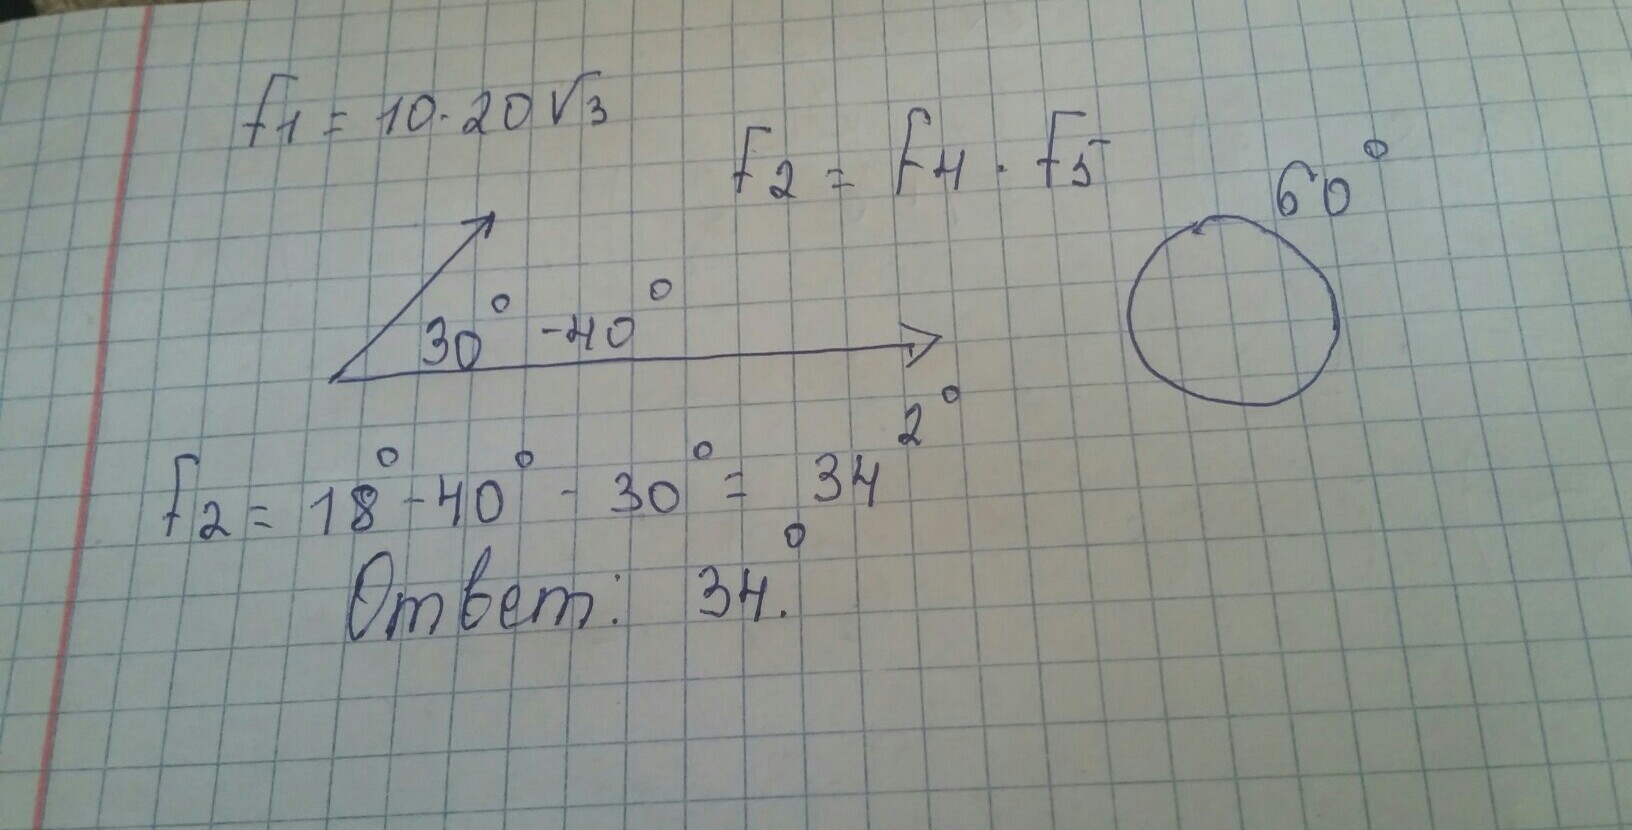 f1 = 10 · 20√3
f2 = f4 · f5
60°
30° -40°
f2 = 18° - 40° - 30° = 34 2°
Ответ: 34.°